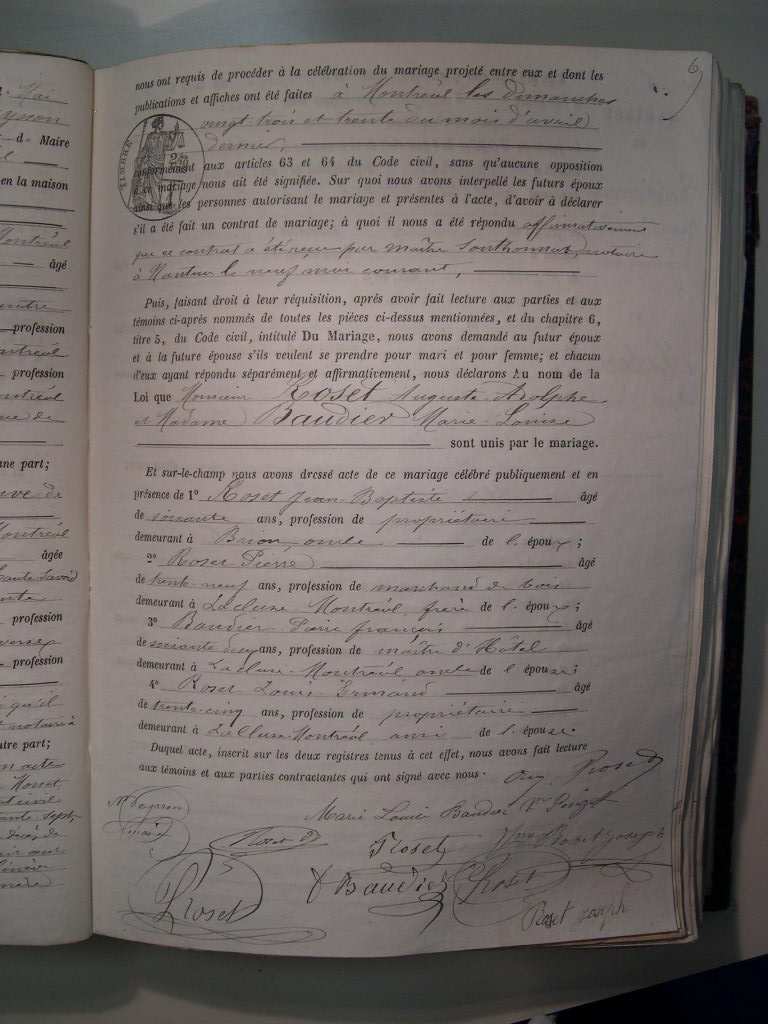 6
nous ont requis de procéder à la célébration du mariage projeté entre eux et dont les
publications et affiches ont été faites à Montréal les dimanches
vingt trois et trente du mois d'avril
dernier,
conformément aux articles 63 et 64 du Code civil, sans qu'aucune opposition
à ce mariage nous ait été signifiée. Sur quoi nous avons interpellé les futurs époux
ainsi que les personnes autorisant le mariage et présentes à l'acte, d'avoir à déclarer
s'il a été fait un contrat de mariage; à quoi il nous a été répondu affirmativement
que ce contrat a été reçu par maître notaire
à Nantua le neuf mai courant,
Puis, faisant droit à leur réquisition, après avoir fait lecture aux parties et aux
témoins ci-après nommés de toutes les pièces ci-dessus mentionnées, et du chapitre 6,
titre 5, du Code civil, intitulé Du Mariage, nous avons demandé au futur époux
et à la future épouse s'ils veulent se prendre pour mari et pour femme; et chacun
d'eux ayant répondu séparément et affirmativement, nous déclarons Au nom de la
Loi que Monsieur Roset Auguste Adolphe
et Madame Baudier Marie Louise
sont unis par le mariage.
Et sur-le-champ nous avons dressé acte de ce mariage célébré publiquement et en
présence de 1° Roset Jean Baptiste âgé
de soixante ans, profession de propriétaire
demeurant à Brion oncle de l'époux;
2° Roset Pierre âgé
de trente-neuf ans, profession de marchand de bois
demeurant à Lacluse Montréal frère de l'époux;
3° Baudier Pierre françois âgé
de soixante dix ans, profession de maître d'Hôtel
demeurant à Lacluse-Montréal oncle de l'épouse;
4° Roset Louis Armand âgé
de trente-cinq ans, profession de propriétaire
demeurant à Lacluse Montréal ami de l'épouse.
Duquel acte, inscrit sur les deux registres tenus à cet effet, nous avons fait lecture
aux témoins et aux parties contractantes qui ont signé avec nous.
Roset
Marie Louise Baudier Vve
maire
Roset
Roset
Roset Joseph
Roset
Baudier
Roset
Roset Joseph
Mai
d- Maire
en la maison
Montréal
âgé
profession
Montréal
profession
Montréal
une part;
Montréal
âgée
profession
profession
qu'il
notaire à
utre part;
acte